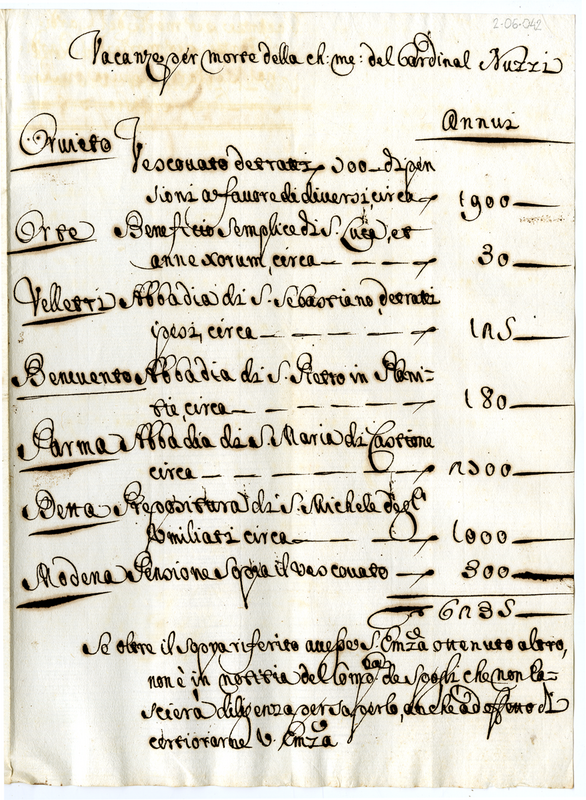 2-06-042
Vacanze per morte della ch: me: del Cardinal Nuzzi
Annui
Orvieto Vescovato detratti 300 di pen
sioni a favore di diversi, circa 1900
Orte Beneficio semplice di S. Luca, et
annexorum, circa 30
Velletri Abbadia di S. Sebastiano, detratti
pesi, circa 125
Benevento Abbadia di S. Pietro in Plani-
tie, circa 180
Parma Abbadia di S. Maria di Castione
circa 2300
Prepositura di S. Michele degl'
Umiliati circa 1000
Modena Pensione sopra il Vescovato 300
6235
Se oltre il sopra riferito avesse S. Emza ottenuto altro,
non è in notitia del Comp. de Spogli che non la-
scierà diligenza per saperlo, anche ad effetto di
certiorarne V. Emza